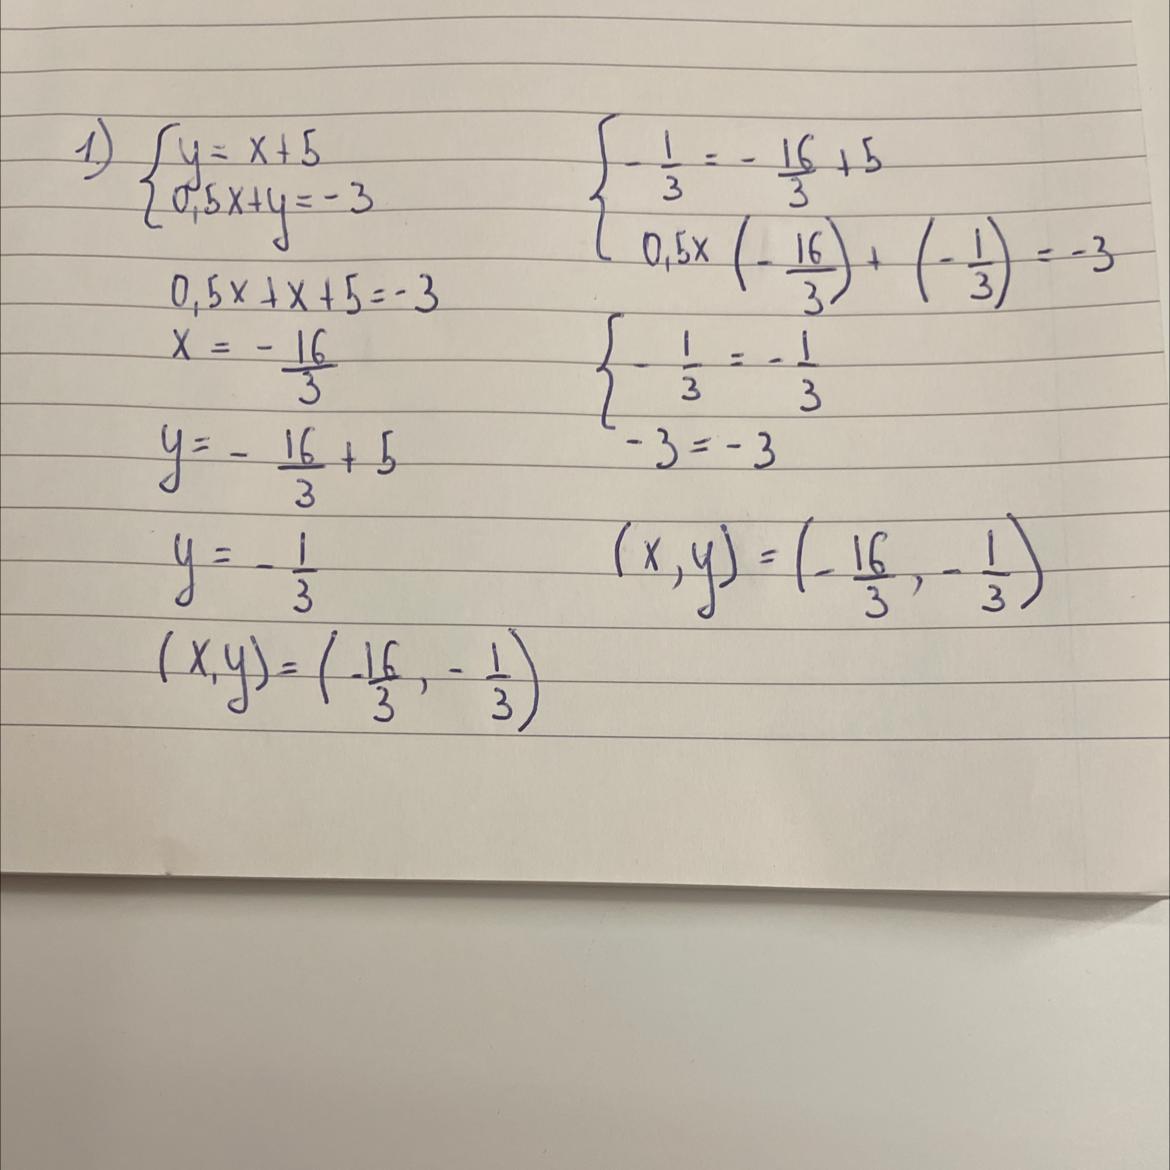 1) { y = x + 5
0,5x + y = -3
0,5x + x + 5 = -3
x = - 16/3
y = - 16/3 + 5
y = - 1/3
(x, y) = (-16/3, - 1/3)
{ - 1/3 = - 16/3 + 5
0,5x (- 16/3) + (- 1/3) = -3
{ - 1/3 = - 1/3
-3 = -3
(x, y) = (- 16/3, - 1/3)